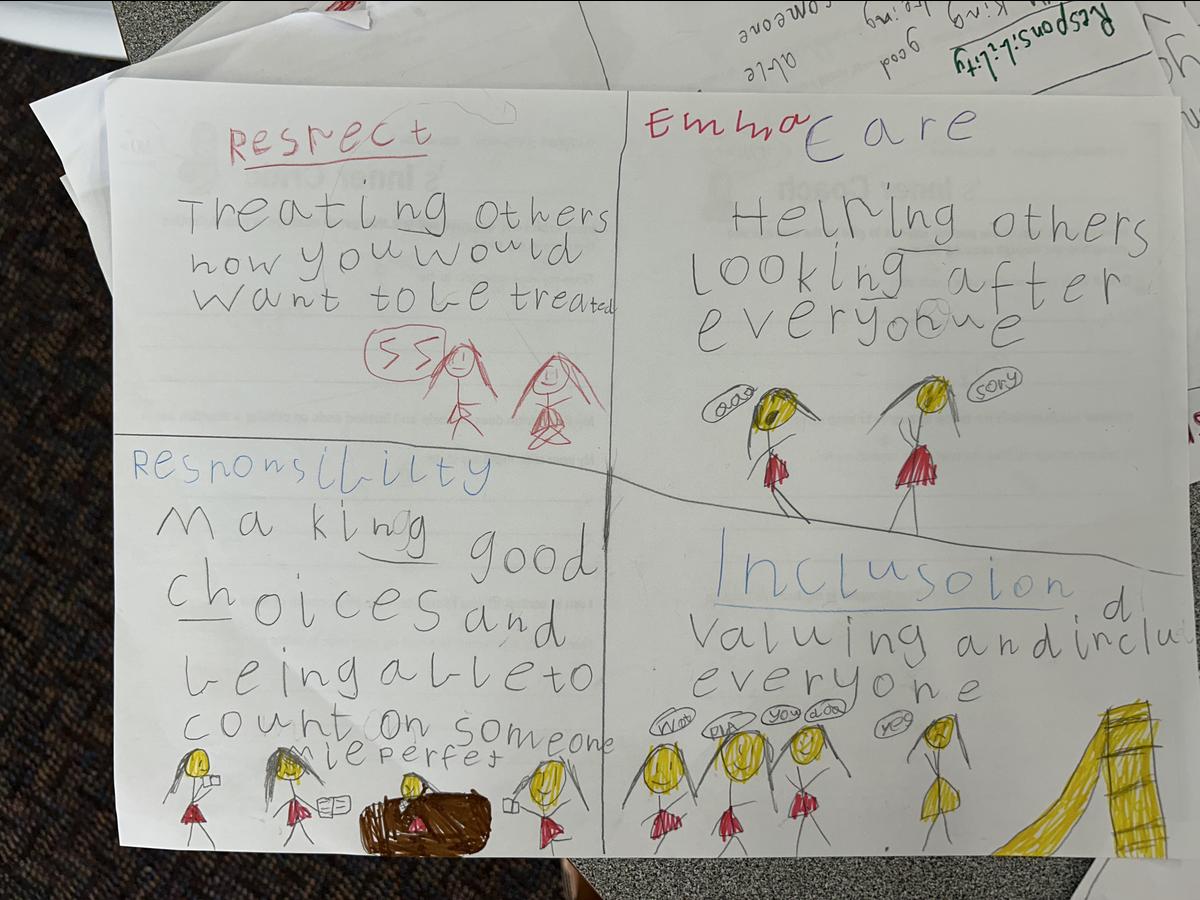 Respect
Treating others
how you would
want to be treated
SS
Emma
Care
Helping others
looking after
everyone
aaa
sory
Responsibilty
Making good
choices and
being able to
count on someone
Inclusoion
Valuing and includ
everyone
you
yes
Responsibility
good
able
someone